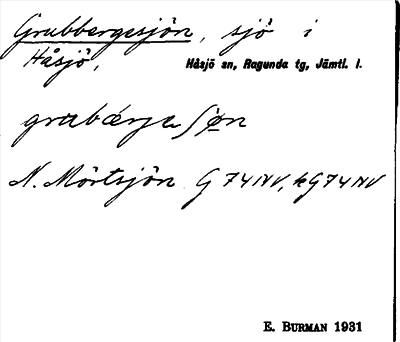 Grubbergssjön, sjö i
Håsjö, Håsjö sn, Ragunda tg, Jämtl. l.
N. Mörtsjön G 74 NV, kG74NV
E. BURMAN 1931